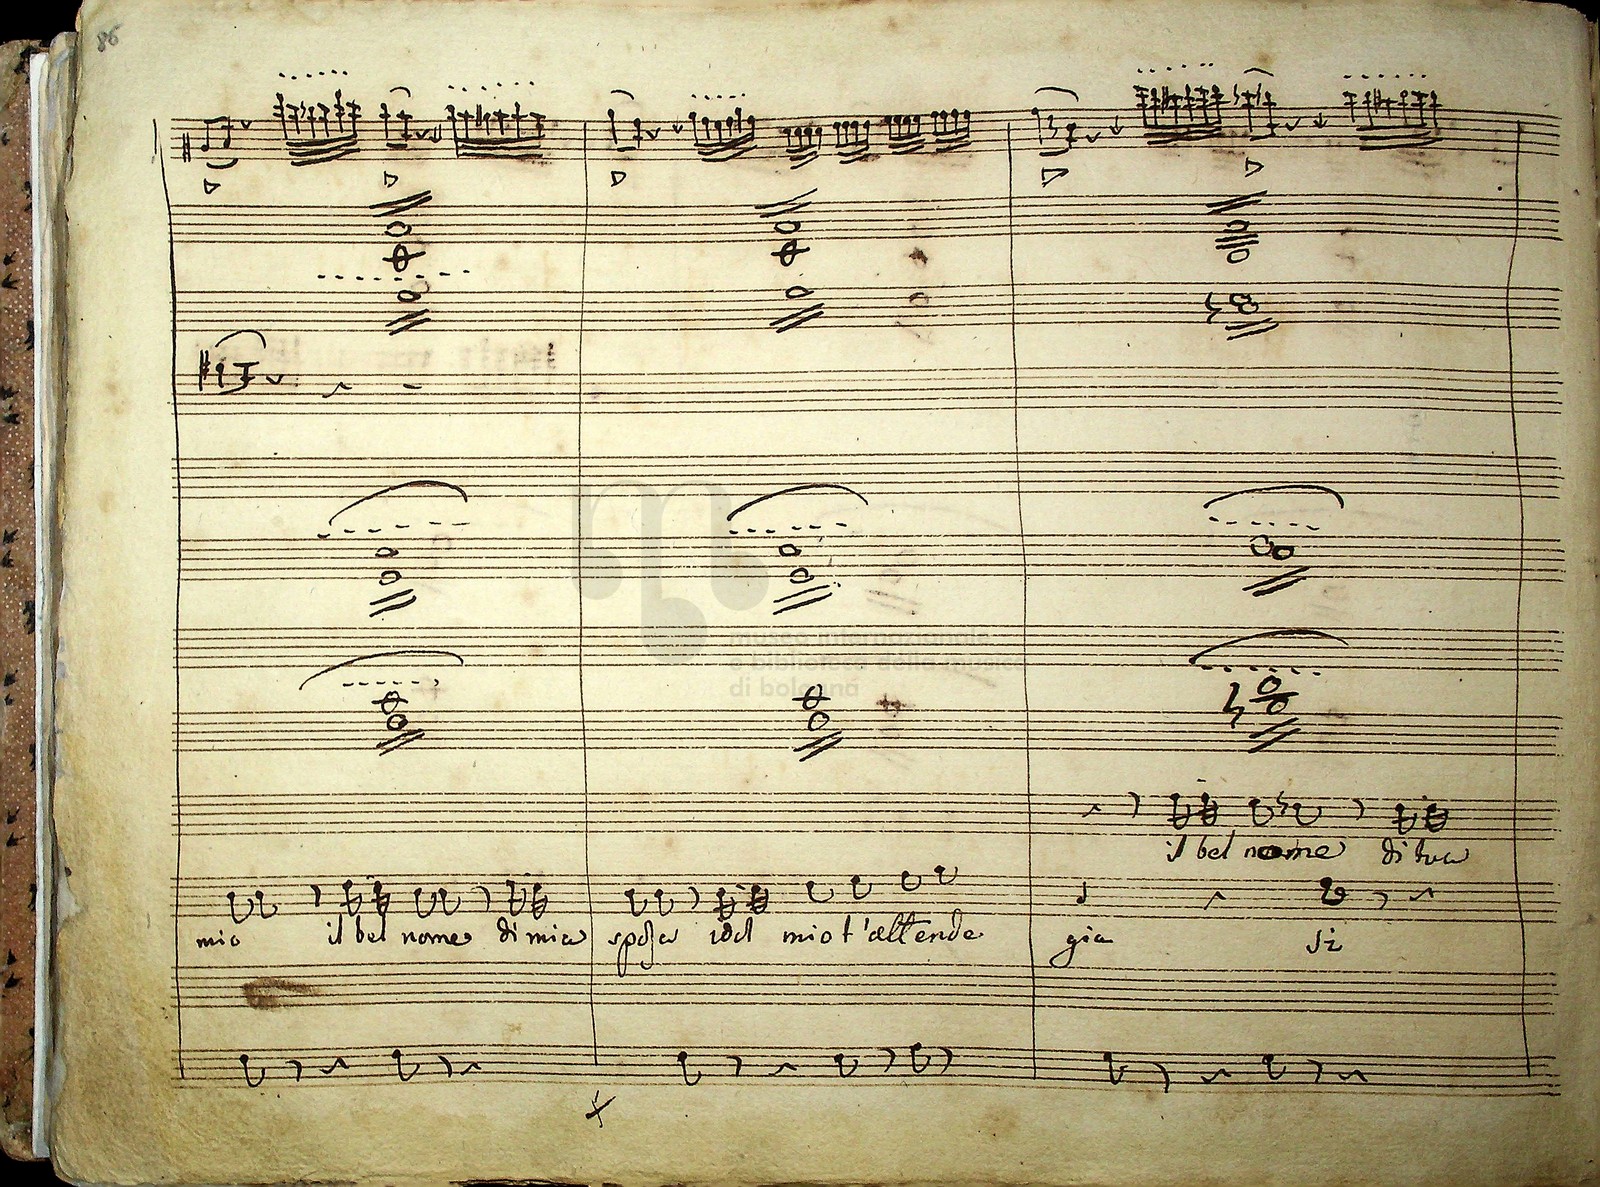 86
museo internazionale
e biblioteca della musica
di bologna
il bel nome di tua
mio il bel nome di mia sposa idol mio t'attende già sì